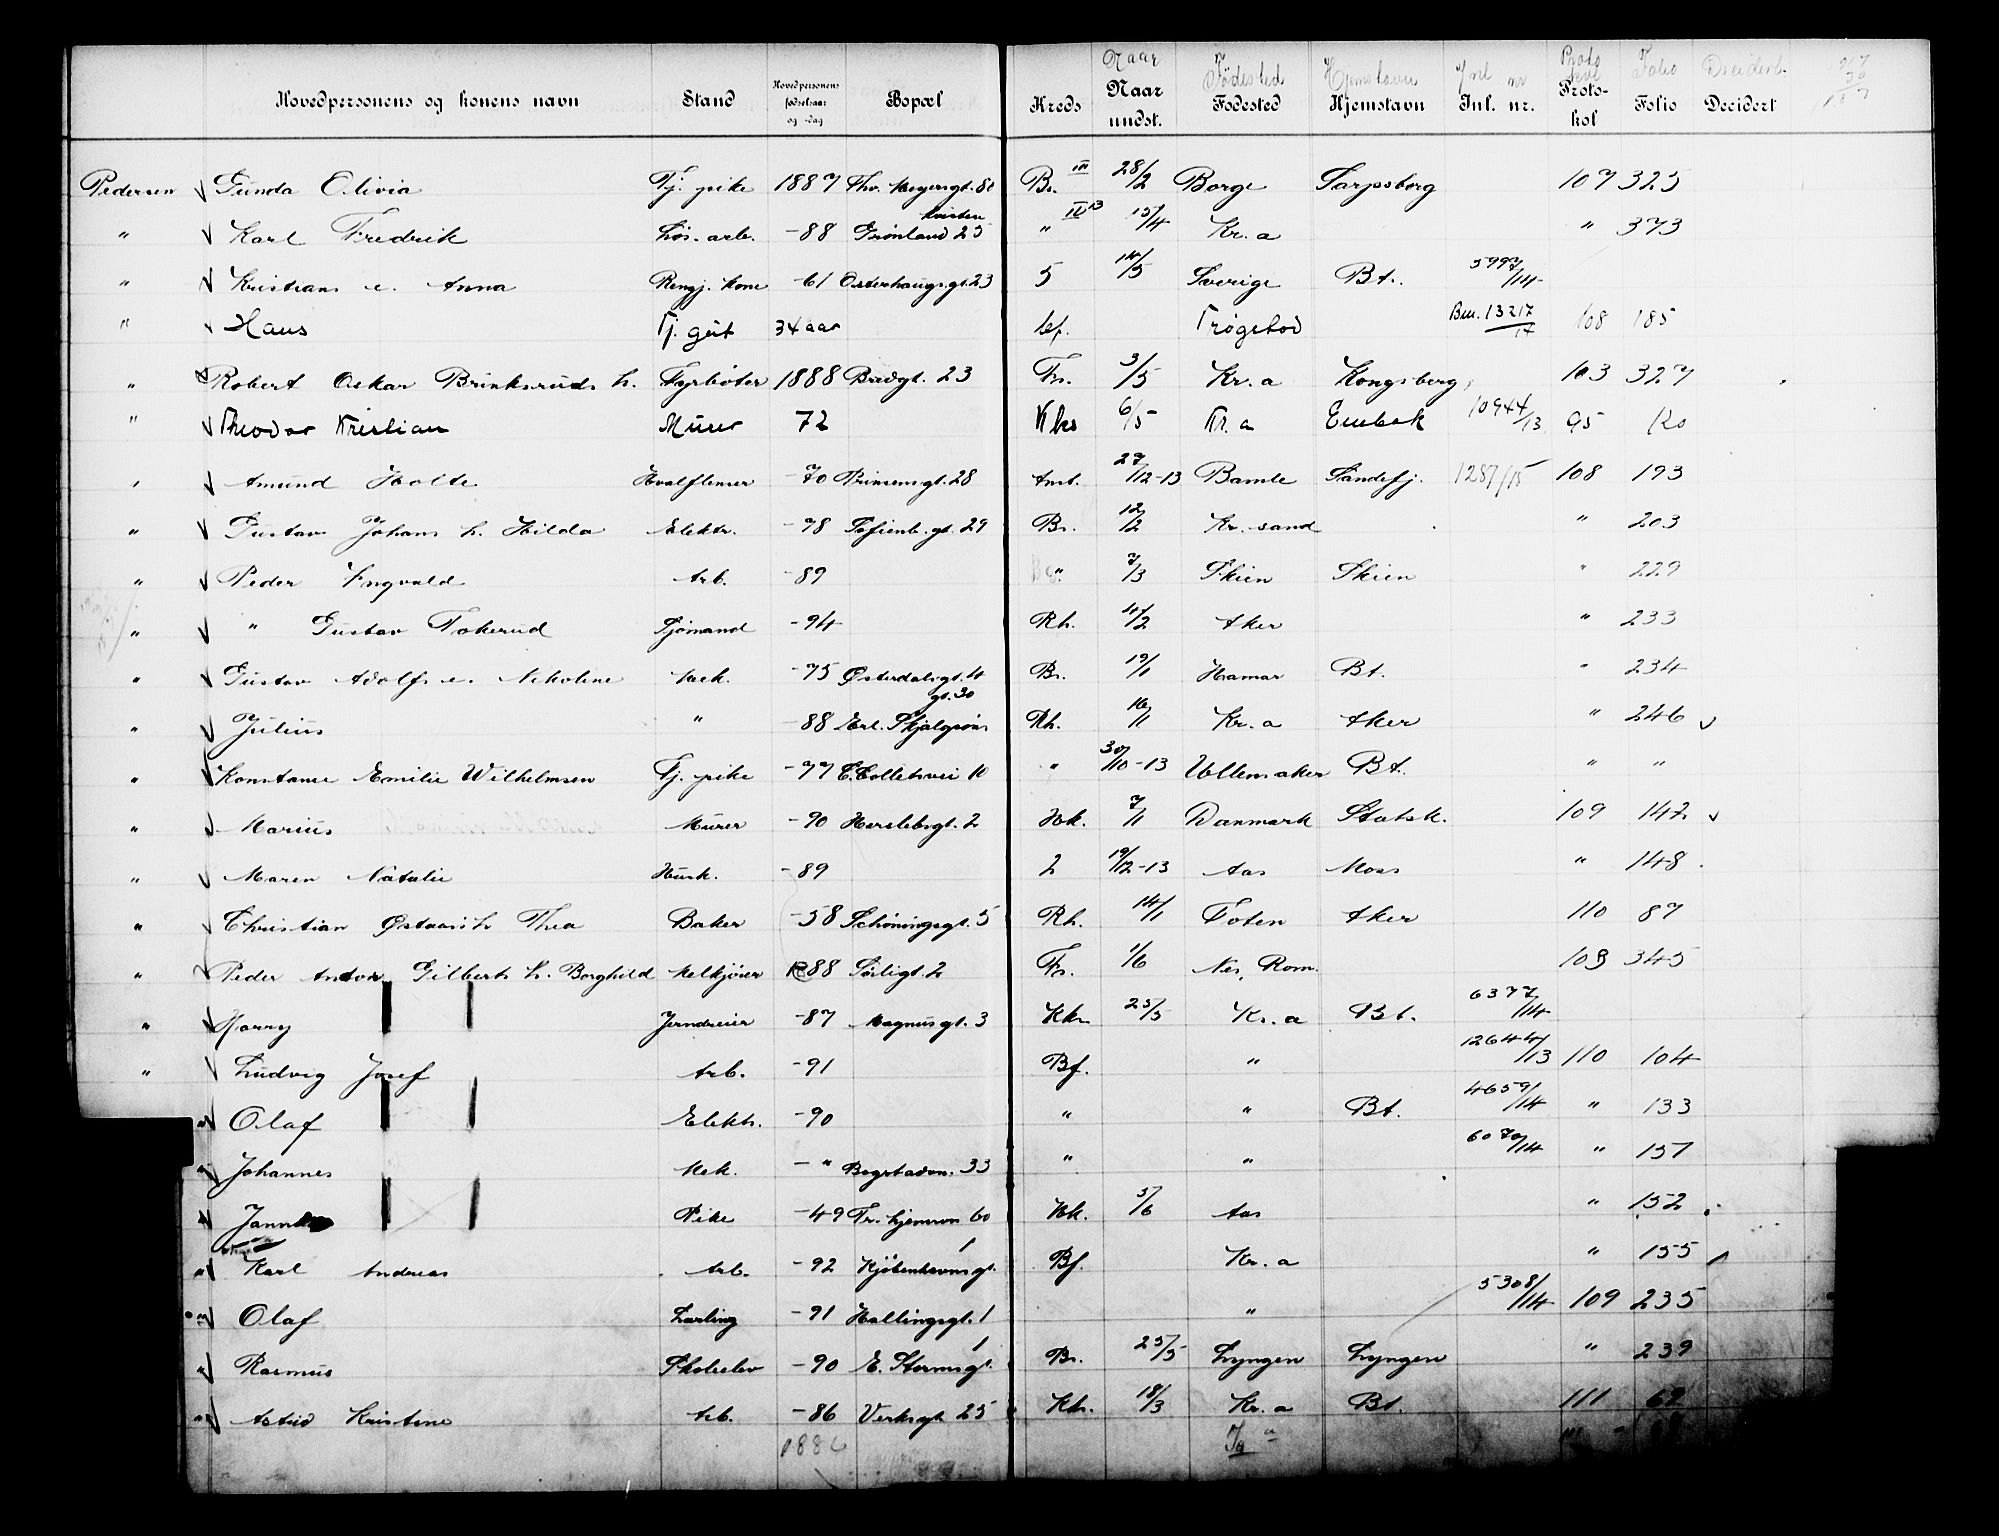 Hovedpersonens og konens navn | Stand | Hovedpersonens fødselsaar og -dag | Bopæl | Kreds | Naar undst. | Fødested | Hjemstavn | Inl. nr. | Proto-kol | Folio | Decidert
Naar | Fødested | Hjemstavn | Inl. nr | Protokol | Folio | Decidert.
Pedersen Gunda Olivia | Tj. pike | 1887 | Thv. Meyersgt. | Br. III | 28/2 | Borge | Sarpsborg | 107 | 325
" Karl Fredrik | Løs. arb. | -88 | Grønland 25 | " | 15/4 | Kr. a | " | 373
" Kristians e. Anna | Rengj. kone | -61 | Osterhausgt. 23 | 5 | 14/5 | Sverige | Bt. | 5997/14
" Hans | Tj. gut | 34 aar | Trøgstad | Bm. 13217/17 | 108 | 185
" Robert Oskar Brinksruds h. | Fyrbøter | 1888 | Bredgt. 23 | Fr. | 3/5 | Kr. a | Kongsberg | 103 | 327
" Theodor Kristian | Murer | 72 | 6/5 | Kr. a | Enebak | 10944/13 | 95 | 120
" Amund Holte | Hvalflenser | -70 | Prinsensgt. 28 | Amt. | 27/12-13 | Bamle | Sandefj. | 1287/15 | 108 | 193
" Gustav Johans h. Hilda | Elektr. | -78 | Sofienb. gt. 29 | Br. | 12/2 | Kr. sand | " | 203
" Peder Ingvald | Arb. | -89 | " | 7/3 | Skien | Skien | " | 229
" " Gustav Tokerud | Sjømand | -94 | Rh. | 4/2 | Aker | " | 233
" Gustav Adolfs e. Nikoline | Mek. | -75 | Østerdalsgt. | Br. | 19/1 | Hamar | Bt. | " | 234
" Julius | " | -88 | Erl. Skjalgsøns gt. 30 | Rh. | 16/1 | Kr. a | Aker | " | 246
" Konstanse Emilie Wilhelmsen | Tj. pike | -97 | C. Colletsvei 10 | " | 30/10-13 | Ullensaker | Bt. | " | "
" Marius | Murer | -90 | Herslebsgt. 2 | Hk. | 7/1 | Danmark | Statsk. | 109 | 142
" Maren Natalie | Hush. | -89 | 2 | 19/12-13 | Aas | Moss | " | 148
" Christian Østaas h. Thea | Baker | -58 | Schøningsgt. 5 | Rh. | 14/1 | Toten | Aker | 110 | 87
" Peder Anton Gilberts h. Borghild | Melkjører | 88 | Sørligt. 2 | Fr. | 1/6 | Nes, Rom. | 108 | 345
" Harry | Jerndreier | -87 | Magnusgt. 3 | Kh. | 25/5 | Kr. a | Bt. | 6377/14
" Ludvig Josef | Arb. | -91 | Bf. | " | 12644/13 | 110 | 104
" Olaf | Elektr. | -90 | " | " | Bt. | 4659/14 | " | 133
" Johannes | Mek. | -" | Bogstadvn. 33 | " | " | 6070/14 | " | 151
" Pike | -49 | Fr. hjemsvn 60 | Hk. | 5/6 | Aas | " | 152
" Karl Andreas | Arb. | -92 | Kjøbenhavnsgt. 1 | Bf. | Kr. a | " | 155
" Olaf | Lærling | -91 | Hallingsgt. 1 | " | 5308/14 | 109 | 235
" Rasmus | Skoleelev | -90 | E. Stormsgt. 1 | Br. | 25/5 | Lyngen | Lyngen | " | 239
" Astrid Kristine | Arb. | -86 | Verksgt. 25 | Kh. | 18/3 | Kr. a | Bt. | 111 | 62
1886